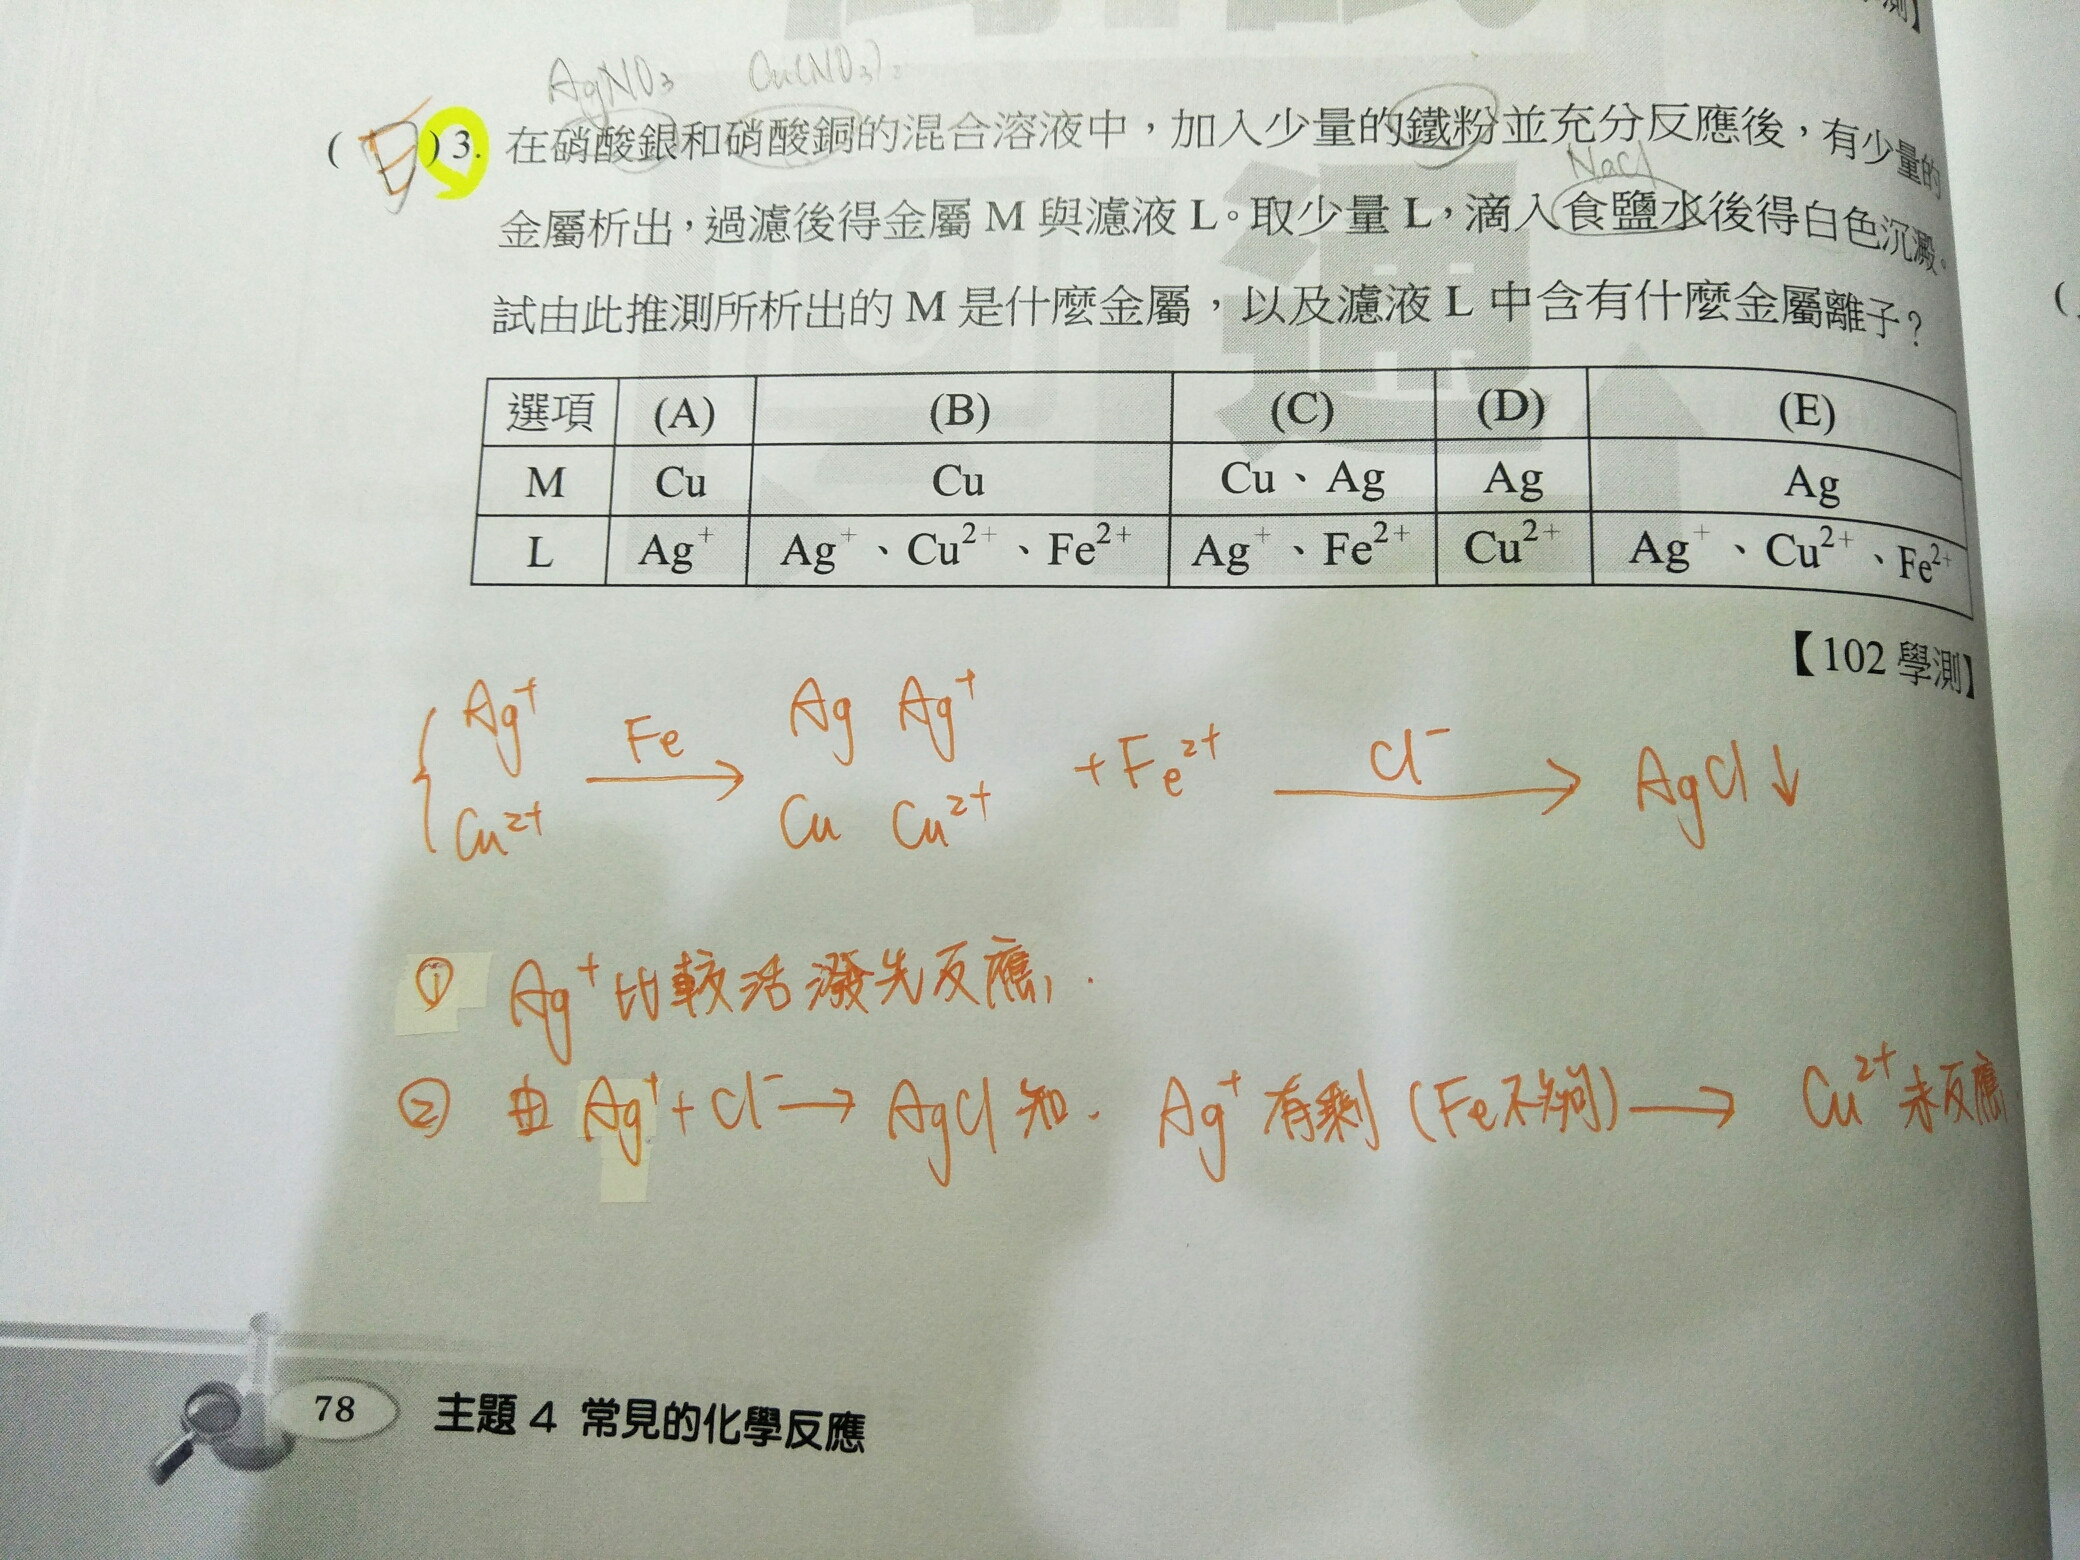 測】
AgNO₃ Cu(NO₃)₂
( E ) 3. 在硝酸銀和硝酸銅的混合溶液中，加入少量的鐵粉並充分反應後，有少量的
NaCl
金屬析出，過濾後得金屬 M 與濾液 L。取少量 L，滴入食鹽水後得白色沉澱。
試由此推測所析出的 M 是什麼金屬，以及濾液 L 中含有什麼金屬離子？
選項 (A) (B) (C) (D) (E)
M Cu Cu Cu、Ag Ag Ag
L Ag⁺ Ag⁺、Cu²⁺、Fe²⁺ Ag⁺、Fe²⁺ Cu²⁺ Ag⁺、Cu²⁺、Fe²⁺
【102 學測】
Ag⁺ Fe Ag Ag⁺ + Fe²⁺ Cl⁻ → AgCl↓
Cu²⁺ → Cu Cu²⁺
① Ag⁺比較活潑先反應,.
② 由 Ag⁺ + Cl⁻ → AgCl 知. Ag⁺ 有剩 (Fe不夠) → Cu²⁺ 未反應
78 主題 4 常見的化學反應